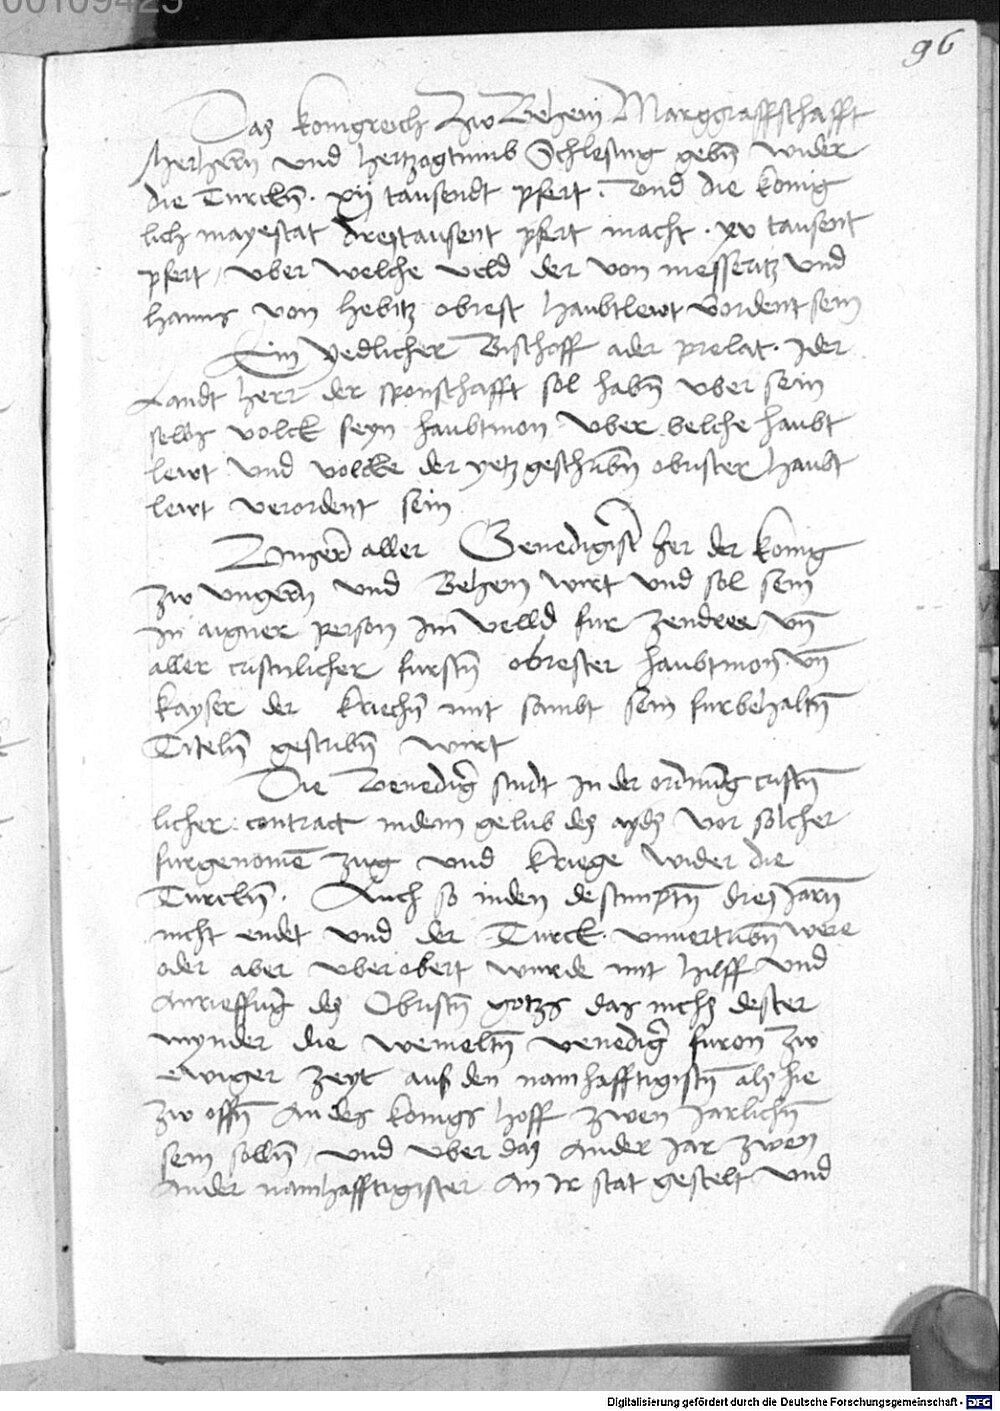 00109423
96
Das konigreich zw Behem Marggraffschafft
Merhern und hertzogtumb Schlesing geben wider
die Turcken. xij tausendt pfert. Und die konig
lich mayestat dreytausent pfert macht. xv tausent
pfert, uber welche veld der von messeritz und
hanns von hebitz obrest haubtlewt vordent sein
Ein Yedlicher Bischoff ader prelat. Ider
Landt herr der sponschafft sol haben uber sein
selbs volck seyn haubtmon uber belche haubt
lewt und volcke der yetz geschriben obrister haubt
lewt verordent sein
Unser aller Genedigist her der konig
zw ungern und Behem wirt und sol sein
in aigner person Im velld fur zendree und
aller cristnlicher fursten obrester haubtmon. und
kayser der kriechen mit sambt sein furbehalten
Titeln gescriben wirt
Die Venediger sindt In der ordnung cristen
licher contract indem gelub des ayds vor solcher
furgenomen zug und kriege wider die
Turcken. Auch so inden destimpten drey Jarn
nicht endet und der Turck. unvertriben were
oder aber uberobert wurde mit hilff und
Anrieffung des Obristen gotzs das nichs dester
mynder die vemelten venediger furon zw
ewiger zeyt auf den namhafftigisten als hie
zw offen An des konigs hoff zwen Jarlichen
sein sollen, und uber das ander Jar zwen
Ander namhafftigister An Ir stat gestelt und
Digitalisierung gefördert durch die Deutsche Forschungsgemeinschaft - DFG